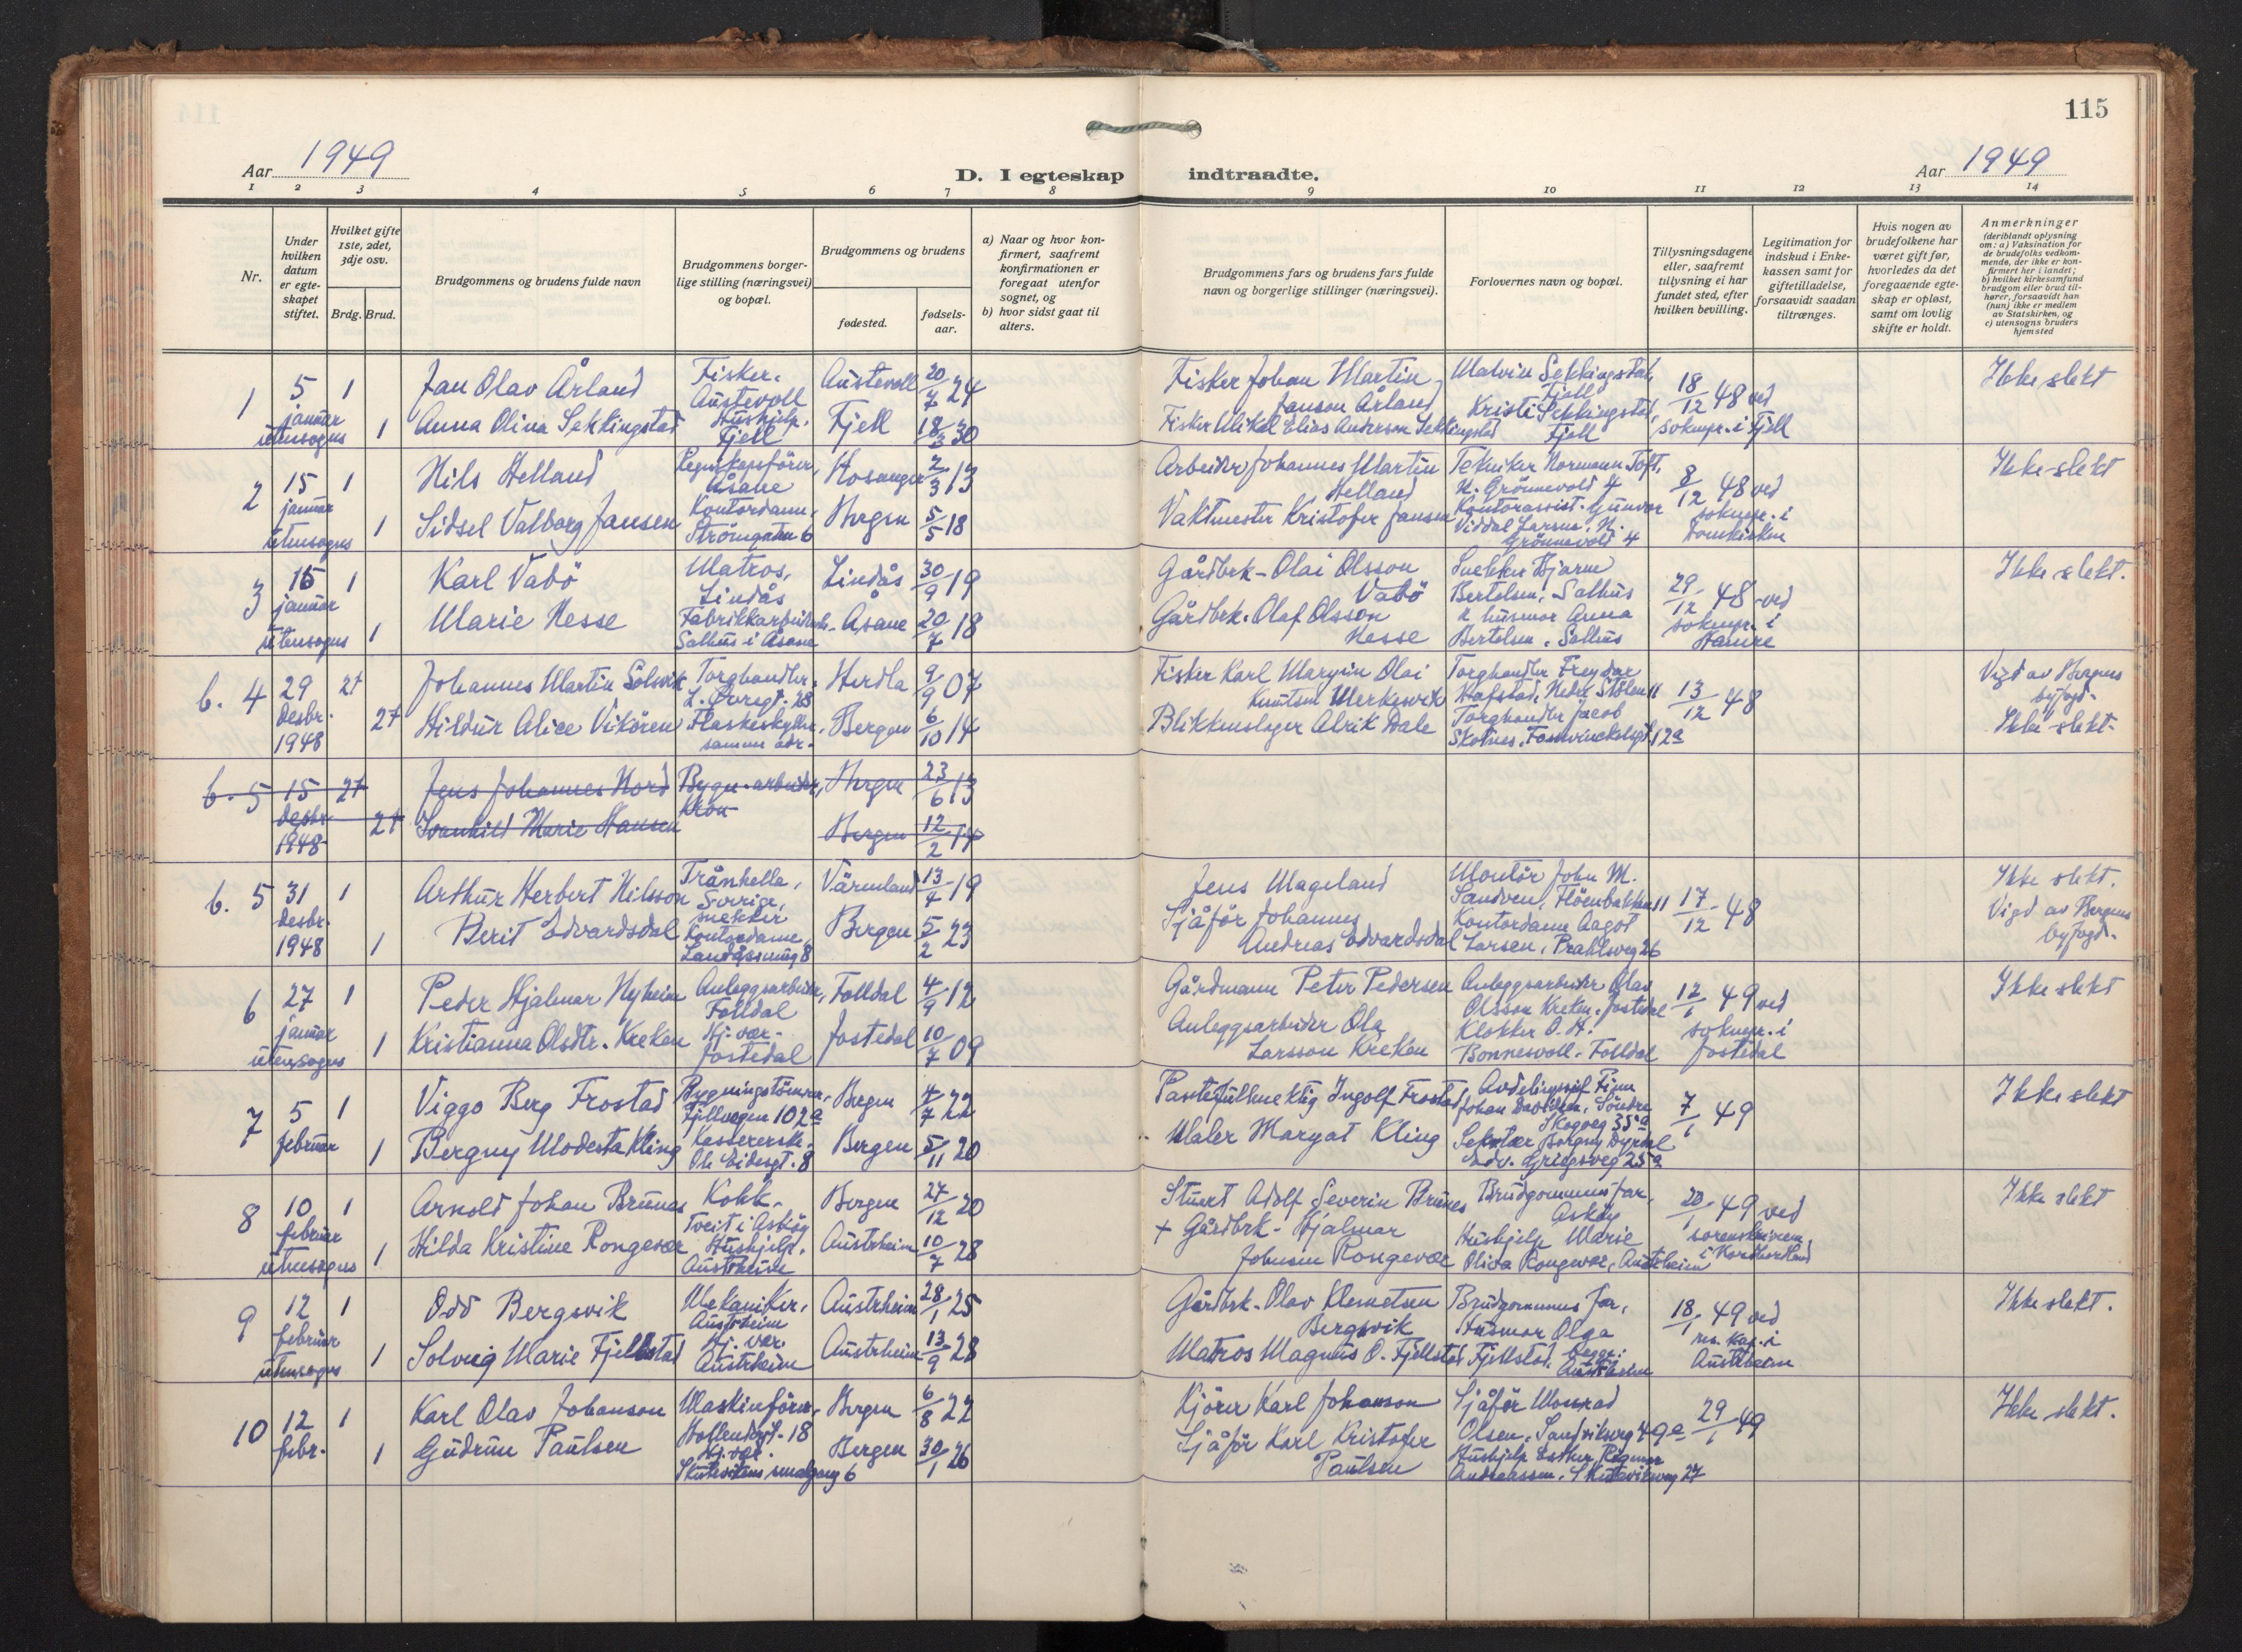 115
Aar 1949
D. I egteskap indtraadte.
Aar 1949
1 2 3 4 5 6 7 8 9 10 11 12 13 14
Nr.
Under hvilken datum er egteskapet stiftet.
Hvilket gifte 1ste, 2det, 3dje osv.
Brdg. Brud.
Brudgommens og brudens fulde navn
Brudgommens borgerlige stilling (næringsvei) og bopæl.
Brudgommens og brudens
fødested.
fødselsaar.
a) Naar og hvor konfirmert, saafremt konfirmationen er foregaat utenfor sognet, og
b) hvor sidst gaat til alters.
Brudgommens fars og brudens fars fulde navn og borgerlige stillinger (næringsvei).
Forlovernes navn og bopæl.
Tillysningsdagene eller, saafremt tillysning ei har fundet sted, efter hvilken bevilling.
Legitimation for indskud i Enkekassen samt for giftetilladelse, forsaavidt saadan tiltrænges.
Hvis nogen av brudefolkene har været gift før, hvorledes da det foregaaende egteskap er opløst, samt om lovlig skifte er holdt.
Anmerkninger (deriblandt oplysning om: a) Vaksination for de brudefolks vedkommende, der ikke er konfirmert her i landet; b) hvilket kirkesamfund brudgom eller brud tilhører, forsaavidt han (hun) ikke er medlem av Statskirken, og c) utensogns bruders hjemsted
1 5 januar utensogns 1 Jan Olav Årland Fisker. Austevoll Austevoll 20/7 24 Fisker Johan Martin Janson Årland Malvin Sekkingstad, Fjell 18/12 48 ved soknepr. i Fjell Ikke slekt
1 Anna Olina Sekkingstad Hushjelp. Fjell Fjell 18/3 30 Fisker Mikal Elias Anderson Sekkingstad Kristi Sekkingstad, Fjell
2 15 januar utensogns 1 Nils Helland Regnskapsförer, Åsane Hosanger 2/3 13 Arbeider Johannes Martin Helland Tekniker Normann Toft, N. Grönnevold 4 8/12 48 ved soknepr. i Domkirken Ikke slekt
1 Sidsel Valborg Jansen Kontordame, Strömgaten 6 Bergen 5/5 18 Vaktmester Kristofer Jansen Kontorassist. Gunvor Viddal Larsen, N. Grönnevold 4
3 15 januar utensogns 1 Karl Vabö Matros, Lindås Lindås 30/9 19 Gårdbrk. Olai Olsson Vabö Snekker Bjarne Bertelsen, Salhus 29/12 48 ved soknepr. i Hamre Ikke slekt.
1 Marie Hesse Fabrikkarbeiderske Salhus i Åsane Åsane 20/7 18 Gårdbrk. Olaf Olsson Hesse & husmor Anna Bertelsen, Salhus
b. 4 29 desbr. 1948 2t Johannes Martin Solsvik Torghandler. L. Övregt. 28 Herdla 9/9 07 Fisker Karl Martin Olai Knutsen Merkesvik Torghandler Freydar Hafstad, Nedre Stölen 11 13/12 48 Vigd av Bergens byfogd. Ikke slekt.
2t Hildur Alice Vikören Flaskeskyller, samme adr. Bergen 6/10 14 Blikkenslager Alrik Dale Torghandler Jacob Skotnes, 12a
b. 5 15 desbr. 1948 2t Jens Johannes Nord Bygn.arbeider, Bergen 23/6 13
2t Svanhild Marie Hansen Bergen 12/2 14
b. 5 31 desbr. 1948 1 Arthur Herbert Nilsson Trånhella, Sverige, snekker Värmland 13/4 19 Jens Mageland Montör John M. Sandven, Flöenbakken 11 17/12 48 Ikke slekt. Vigd av Bergens byfogd.
1 Berit Edvardsdal Kontordame, Bergen 5/2 23 Sjåför Johannes Andreas Edvardsdal Kontordame Aagot Larsen, Prahlsveg 26
6 27 januar utensogns 1 Peder Hjalmar Nyheim Anleggsarbeider, Folldal Folldal 4/9 12 Gårdmann Peter Pedersen Anleggsarbeider Olav Olsson Kreken, Jostedal 12/1 49 ved soknepr. i Jostedal Ikke slekt
1 Kristianna Olsdtr. Kreken Hj. vær. Jostedal Jostedal 10/7 09 Anleggsarbeider Ola Larsson Kreken Klokker O. H. Bonnesvoll, Folldal
7 5 februar 1 Viggo Berg Frostad Bygningstömrer, Fjellvegen 102a Bergen 4/7 22 Pantefullmektig Ingolf Frostad Avdelingssjef Finn Johan Davidsen, Söndre Skogveg 55a 7/1 49 Ikke slekt
1 Bergny Modesta Kling Kassererske. Bergen 5/11 20 Maler Margat Kling Sekretær Borgny Dyrdal Edv. Griegsveg 25a
8 10 februar utensogns 1 Arnold Johan Brunes Kokk. Tveit i Asköy Bergen 27/12 20 Stuert Adolf Severin Brunes Brudgommens far, Asköy 20/1 49 ved sorenskriveren i Nordhordland Ikke slekt
1 Hilda Kristine Rongevær Hushjelp. Austrheim Austrheim 10/7 28 + Gårdbrk. Hjalmar Johnsen Rongevær Hushjelp Marie Olida Rongevær, Austrheim
9 12 februar utensogns 1 Odd Bergsvik Mekaniker, Austrheim Austrheim 28/1 25 Gårdbrk. Olav Klemetsen Bergsvik Brudgommens far, 18/1 49 ved res. kap. i Austrheim Ikke slekt.
1 Solveig Marie Fjellstad Hj. vær. Austrheim Austrheim 13/9 28 Matros Magnus O. Fjellstad Husmor Olga Fjellstad, begge: Austrheim
10 12 febr. 1 Karl Olav Johanson Maskinförer, 18 Bergen 6/8 22 Kjörer Karl Johanson Sjåför Monrad Olsen, Sandviksveg 49a 29/1 49 Ikke slekt.
1 Gudrun Paulsen Hj. vær. Skuteviksens smalgang 6 Bergen 30/1 26 Sjåför Karl Kristofer Paulsen Hushjelp Esther Rigmor Andreassen, Skuteviksveg 27